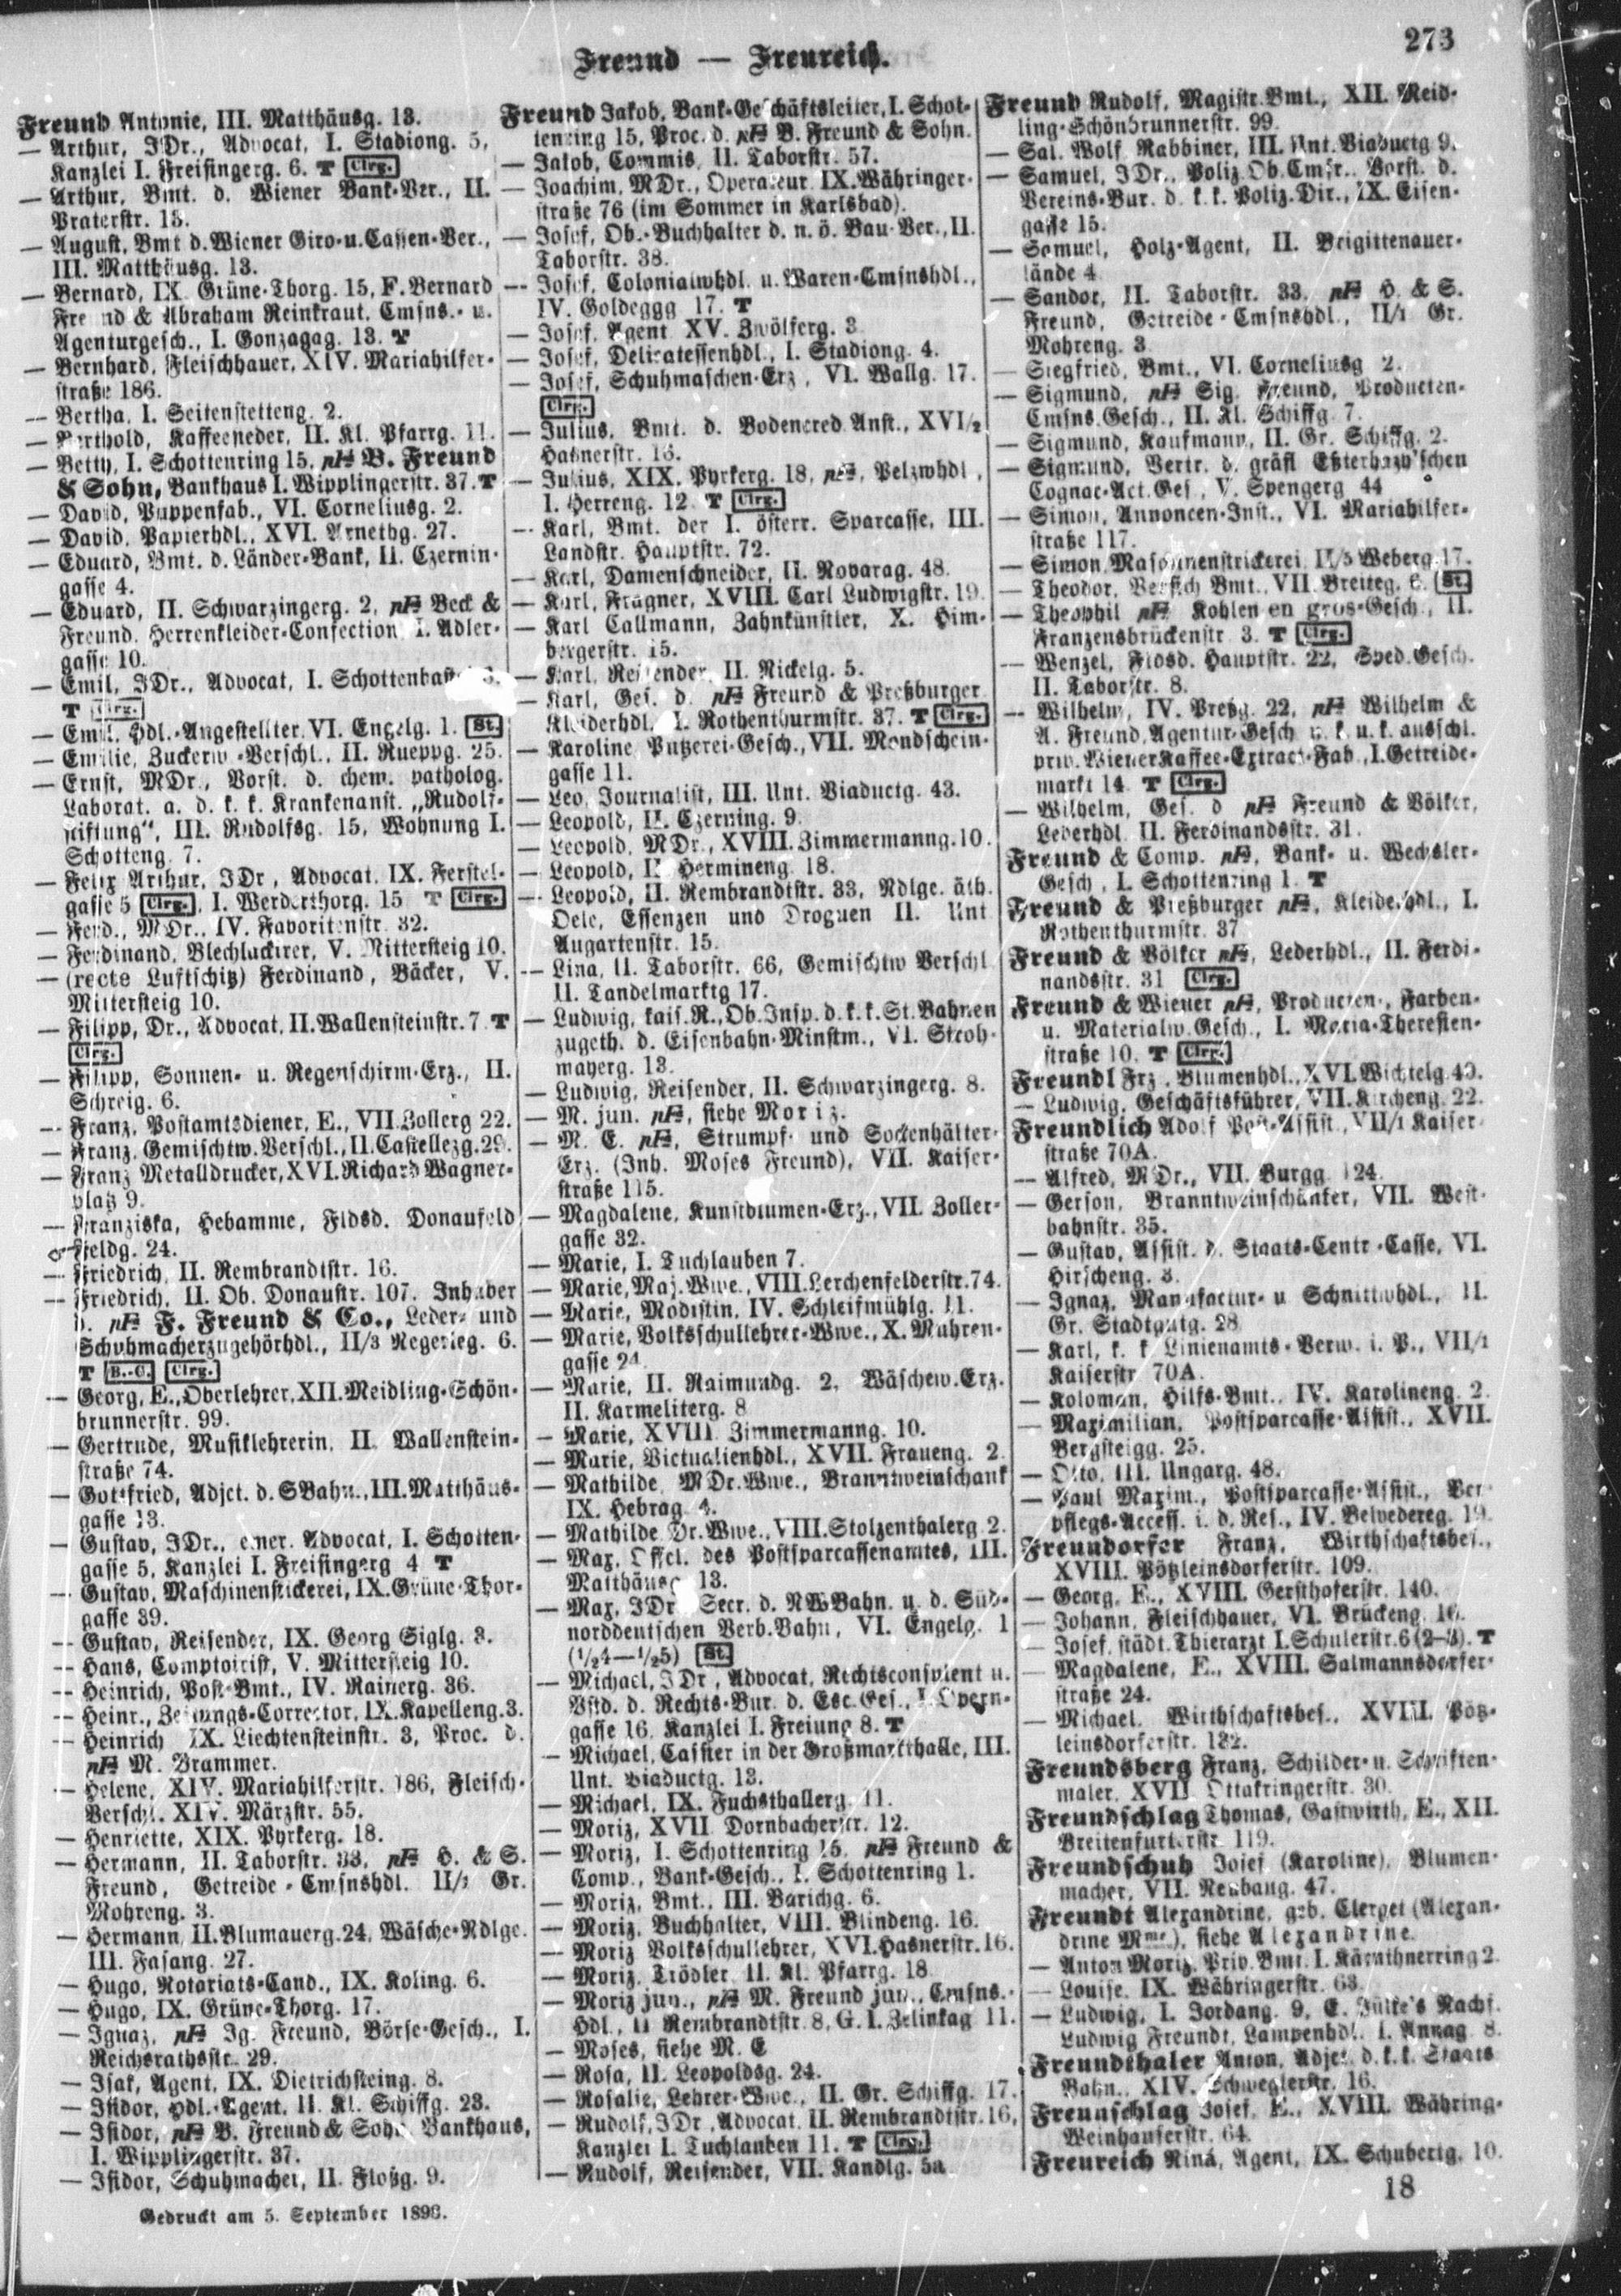 273
Freund — Freureich.
Freund Antonie, III. Matthäusg. 13.
— Arthur, JDr., Advocat, I. Stadiong. 5,
Kanzlei I. Freisingerg. 6. T Clrg.
— Arthur, Bmt. d. Wiener Bank-Ver., II.
Praterstr. 13.
— August, Bmt d. Wiener Giro-u. Cassen-Ver.,
III. Matthäusg. 13.
— Bernard, IX. Grüne-Thorg. 15, F. Bernard
Freund & Abraham Reinkraut, Cmsns.- u.
Agenturgesch., I. Gonzagag. 13. T
— Bernhard, Fleischhauer, XIV. Mariahilfer-
straße 186.
— Bertha, I. Seitenstetteng. 2.
— Berthold, Kaffeesieder, II. Kl. Pfarrg. 11.
— Betty, I. Schottenring 15, B. Freund
& Sohn, Bankhaus I. Wipplingerstr. 37. T
— David, Puppenfab., VI. Corneliusg. 2.
— David, Papierhdl., XVI. Arnethg. 27.
— Eduard, Bmt. d. Länder-Bank, II. Czernin-
gasse 4.
— Eduard, II. Schwarzingerg. 2, Beck &
Freund, Herrenkleider-Confection I. Adler-
gasse 10.
— Emil, JDr., Advocat, I. Schottenbast
T Clrg.
— Emil, Hdl.-Angestellter VI. Engelg. 1. St.
— Emilie, Zuckerw.-Verschl., II. Rueppg. 25.
— Ernst, MDr., Vorst. d. chem. patholog.
Laborat. a. d. k. k. Krankenanst. „Rudolf-
stiftung“, III. Rudolfsg. 15, Wohnung I.
Schotteng. 7.
— Felix Arthur, JDr., Advocat, IX. Ferstel-
gasse 5 Clrg., I. Werderthorg. 15 T Clrg.
— Ferd., MDr., IV. Favoritenstr. 32.
— Ferdinand, Blechlackirer, V. Mittersteig 10.
— (recte Luftschitz) Ferdinand, Bäcker, V.
Mittersteig 10.
— Filipp, Dr., Advocat, II. Wallensteinstr. 7. T
Clrg.
— Filipp, Sonnen- u. Regenschirm-Erz., II.
Schreig. 6.
— Franz, Postamtsdiener, E., VII. Zollerg 22.
— Franz, Gemischtw. Verschl., II. Castellezg. 29.
— Franz Metalldrucker, XVI. Richard Wagner-
platz 9.
— Franziska, Hebamme, Fldsd. Donaufeld
Feldg. 24.
— Friedrich, II. Rembrandtstr. 16.
— Friedrich, II. Ob. Donaustr. 107. Inhaber
d. F. Freund & Co., Leder- und
Schuhmacherzugehörhdl., II/3 Regerleg. 6.
T B.-C. Clrg.
— Georg, E., Oberlehrer, XII. Meidling-Schön-
brunnerstr. 99.
— Gertrude, Musiklehrerin, II. Wallenstein-
straße 74.
— Gottfried, Adjct. d. SBahn., III. Matthäus-
gasse 13.
— Gustav, JDr., emer. Advocat, I. Schotten-
gasse 5, Kanzlei I. Freisingerg 4 T
— Gustav, Maschinenstickerei, IX. Grüne-Thor-
gasse 39.
— Gustav, Reisender, IX. Georg Siglg. 3.
— Hans, Comptoirist, V. Mittersteig 10.
— Heinrich, Post-Bmt., IV. Rainerg. 36.
— Heinr., Zeitungs-Corrector, IX. Kapelleng. 3.
— Heinrich IX. Liechtensteinstr. 3, Proc. d.
M. Brammer.
— Helene, XIV. Mariahilferstr. 186, Fleisch-
Verschl. XIV. Märzstr. 55.
— Henriette, XIX. Pyrkerg. 18.
— Hermann, II. Taborstr. 33, H. & S.
Freund, Getreide-Cmsnshdl. II/1 Gr.
Mohreng. 3.
— Hermann, II. Blumauerg. 24, Wäsche-Ndlge.
III. Fasang. 27.
— Hugo, Notariats-Cand., IX. Koling. 6.
— Hugo, IX. Grüne-Thorg. 17.
— Ignaz, Ig. Freund, Börse-Gesch., I.
Reichsrathsstr. 29.
— Isak, Agent, IX. Dietrichsteing. 8.
— Isidor, Hdl.-Agent, II. Kl. Schiffg. 23.
— Isidor, B. Freund & Sohn, Bankhaus,
I. Wipplingerstr. 37.
— Isidor, Schuhmacher, II. Floßg. 9.
Gedruckt am 5. September 1896.
Freund Jakob, Bank-Geschäftsleiter, I. Schot-
tenring 15, Proc. d. B. Freund & Sohn.
— Jakob, Commis, II. Taborstr. 57.
— Joachim, MDr., Operateur IX. Währinger-
straße 76 (im Sommer in Karlsbad).
— Josef, Ob.-Buchhalter d. n. ö. Bau-Ver., II.
Taborstr. 38.
— Josef, Colonialwhdl. u. Waren-Cmsnshdl.,
IV. Goldeggg 17. T
— Josef, Agent XV. Zwölferg. 3
— Josef, Delicatessenhdl., I. Stadiong. 4.
— Josef, Schuhmaschen-Erz., VI. Wallg. 17.
Clrg.
— Julius, Bmt. d. Bodencred Anst., XVI/2
Hasnerstr. 13.
— Julius, XIX. Pyrkerg. 18, Pelzwhdl.,
I. Herreng. 12 T Clrg.
— Karl, Bmt. der I. österr. Sparcasse, III.
Landstr. Hauptstr. 72.
— Karl, Damenschneider, II. Novarag. 48.
— Karl, Fragner, XVIII. Carl Ludwigstr. 19.
— Karl Callmann, Zahnkünstler, X. Him-
bergerstr. 15.
— Karl, Reisender, II. Nickelg. 5.
— Karl, Ges. d. Freund & Preßburger
Kleiderhdl. I. Rothenthurmstr. 37. T Clrg.
— Karoline Putzerei-Gesch., VII. Mondschein-
gasse 11.
— Leo, Journalist, III. Unt. Viaductg. 43.
— Leopold, II. Czerning. 9.
— Leopold, MDr., XVIII. Zimmermanng. 10.
— Leopold, II Hermineng. 18.
— Leopold, II. Rembrandtstr. 33, Ndlge. äth.
Oele, Essenzen und Droguen II. Unt
Augartenstr. 15.
— Lina, II. Taborstr. 66, Gemischtw Verschl
II. Tandelmarktg 17.
— Ludwig, kais. R., Ob. Insp. d. k. k. St. Bahnen
zugeth. d. Eisenbahn-Minstm., VI. Stroh-
mayerg. 13.
— Ludwig, Reisender, II. Schwarzingerg. 8.
— M. jun. siehe Moriz.
— M. E. Strumpf- und Sockenhälter-
Erz. (Inh. Moses Freund), VII. Kaiser-
straße 115.
— Magdalene, Kunstblumen-Erz., VII. Zoller-
gasse 32.
— Marie, I. Tuchlauben 7.
— Marie, Maj. Wwe., VIII. Lerchenfelderstr. 74.
— Marie, Modistin, IV. Schleifmühlg. 11.
— Marie, Volksschullehrer-Wwe., X. Muhren-
gasse 24.
— Marie, II. Raimundg. 2, Wäschew. Erz.
II. Karmeliterg. 8
— Marie, XVIII Zimmermanng. 10.
— Marie, Victualienhdl., XVII. Fraueng. 2
— Mathilde MDr. Wwe., Branntweinschank
IX. Hebrag. 4.
— Mathilde Dr. Wwe., VIII. Stolzenthalerg 2.
— Max, Offcl. des Postsparcassenamtes, III.
Matthäusg 13.
— Max, JDr Secr. d. NWBahn. u. d. Süd-
norddeutschen Verb. Bahn, VI. Engelg. 1
(1/24—1/25) St.
— Michael, JDr, Advocat, Rechtsconsulent u.
Vstd. d. Rechts-Bur. d. Esc. Ges., I. Opern-
gasse 16, Kanzlei I. Freiung 8. T
— Michael, Cassier in der Großmarkthalle, III.
Unt. Viaductg. 13.
— Michael, IX. Fuchsthallerg. 11.
— Moriz, XVII Dornbacherstr. 12.
— Moriz, I. Schottenring 15, Freund &
Comp., Bank-Gesch., I. Schottenring 1.
— Moriz, Bmt., III. Barichg. 6.
— Moriz, Buchhalter, VIII. Blindeng. 16.
— Moriz Volksschullehrer, XVI. Hasnerstr. 16.
— Moriz, Trödler II. Kl. Pfarrg. 18
— Moriz jun., M. Freund jun., Cmsns.-
Hdl., II Rembrandtstr. 8, G. I. Zelinkag 11.
— Moses, siehe M. E
— Rosa, II. Leopoldsg. 24.
— Rosalie, Lehrer-Wwe., II. Gr. Schiffg. 17.
— Rudolf, JDr, Advocat, II. Rembrandtstr. 16,
Kanzlei I. Tuchlauben 11. T Clrg.
— Rudolf, Reisender, VII. Kandlg. 5a
Freund Rudolf, Magistr. Bmt., XII. Meid-
ling-Schönbrunnerstr. 99.
— Sal. Wolf Rabbiner, III. Unt. Viaductg 9.
— Samuel, JDr., Poliz. Ob. Cmsr., Vorst. d.
Vereins-Bur. d. k. k. Poliz. Dir., IX. Eisen-
gasse 15.
— Samuel, Holz-Agent, II. Brigittenauer-
lände 4
— Sandor, II. Taborstr. 33, H. & S.
Freund, Getreide-Cmsnshdl., II/1 Gr.
Mohreng. 3
— Siegfried, Bmt., VI. Corneliusg 2.
— Sigmund, Sig. Freund, Producten-
Cmsns. Gesch., II. Kl. Schiffg 7.
— Sigmund, Kaufmann, II. Gr. Schiffg. 2.
— Sigmund, Vertr. d. gräfl Eßterhazy'schen
Cognac-Act. Ges., V. Spengerg 44
— Simon, Annoncen-Inst., VI. Mariahilfer-
straße 117.
— Simon, Maschinenstrickerei Weberg 17.
— Theodor, Bmt., VII. Breiteg. 6. St.
— Theophil Kohlen en gros-Gesch., II.
Franzensbrückenstr 3. T Clrg.
— Wenzel, Fldsd. Hauptstr. 22, Sped. Gesch.
II. Taborstr. 8.
— Wilhelm, IV. Preßg. 22, Wilhelm &
A. Freund, Agentur-Gesch u. k. u. k. ausschl.
priv. Wiener Kaffee-Extract-Fab., I. Getreide-
markt 14 T Clrg.
— Wilhelm, Ges. d Freund & Völker,
Lederhdl. II. Ferdinandsstr. 31.
Freund & Comp. Bank- u. Wechsler-
Gesch., I. Schottenring 1. T
Freund & Preßburger Kleiderhdl., I.
Rothenthurmstr. 37
Freund & Völker Lederhdl., II. Ferdi-
nandsstr. 31 Clrg.
Freund & Wiener Producten-, Farben-
u. Materialw. Gesch., I. Maria-Theresien-
straße 10. T Clrg.
Freundl Frz., Blumenhdl., XVI. Wichtelg. 49.
— Ludwig, Geschäftsführer, VII. Kircheng. 22.
Freundlich Adolf Post-Assist., VII/1 Kaiser-
straße 70A.
— Alfred, MDr., VII. Burgg. 124.
— Gerson, Branntweinschänker, VII. West-
bahnstr. 35.
— Gustav, Assist. d. Staats-Centr.-Casse, VI.
Hirscheng. 3.
— Ignaz, Manufactur- u Schnittwhdl., II.
Gr. Stadtgutg. 28
— Karl, k. k Linienamts-Verw. i. P., VII/1
Kaiserstr 70A.
— Koloman, Hilfs-Bmt., IV. Karolineng. 2.
— Maximilian, Postsparcasse-Assist., XVII.
Bergsteigg. 25.
— Otto, III. Ungarg. 48.
— Paul Maxim., Postsparcasse-Assist., Ver
pflegs-Access. i. d. Res., IV. Belvedereg. 19.
Freundorfer Franz, Wirthschaftsbes.,
XVIII. Pötzleinsdorferstr. 109.
— Georg, E., XVIII. Gersthoferstr. 140.
— Johann, Fleischhauer, VI. Brückeng. 16.
— Josef, städt. Thierarzt I. Schulerstr. 6 (2—3). T
— Magdalene, E., XVIII. Salmannsdorfer-
straße 24.
— Michael, Wirthschaftsbes., XVIII. Pötz-
leinsdorferstr. 132.
Freundsberg Franz, Schilder- u. Schriften-
maler, XVII Ottakringerstr. 30.
Freundschlag Thomas, Gastwirth, E., XII.
Breitenfurterstr. 119.
Freundschuh Josef (Karoline), Blumen-
macher, VII. Neubaug. 47.
Freundt Alexandrine, geb. Clerget (Alexan-
drine Mme), siehe Alexandrine.
— Anton Moriz, Priv. Bmt. I. Kärnthnerring 2.
— Louise, IX. Währingerstr. 63.
— Ludwig, I. Jordang. 9, E. Jülke's Nachf.
Ludwig Freundt, Lampenhdl. I. Annag 8.
Freundthaler Anton, Adjct. d. k. k. Staats
Bahn., XIV. Schweglerstr. 16.
Freunschlag Josef, E., XVIII. Währing-
Weinhauserstr. 64.
Freureich Nina, Agent, IX. Schubertg. 10.
18